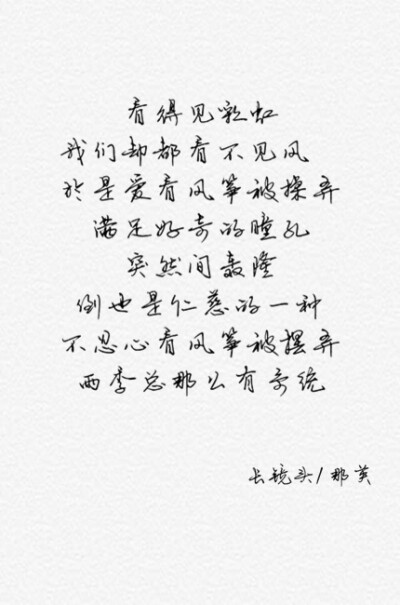 看得见彩虹
我们却都看不见风
於是爱看风筝被操弄
满足好奇的瞳孔
突然间轰隆
倒也是仁慈的一种
不忍心看风筝被摆弄
雨季总那么有系统
长镜头/那英